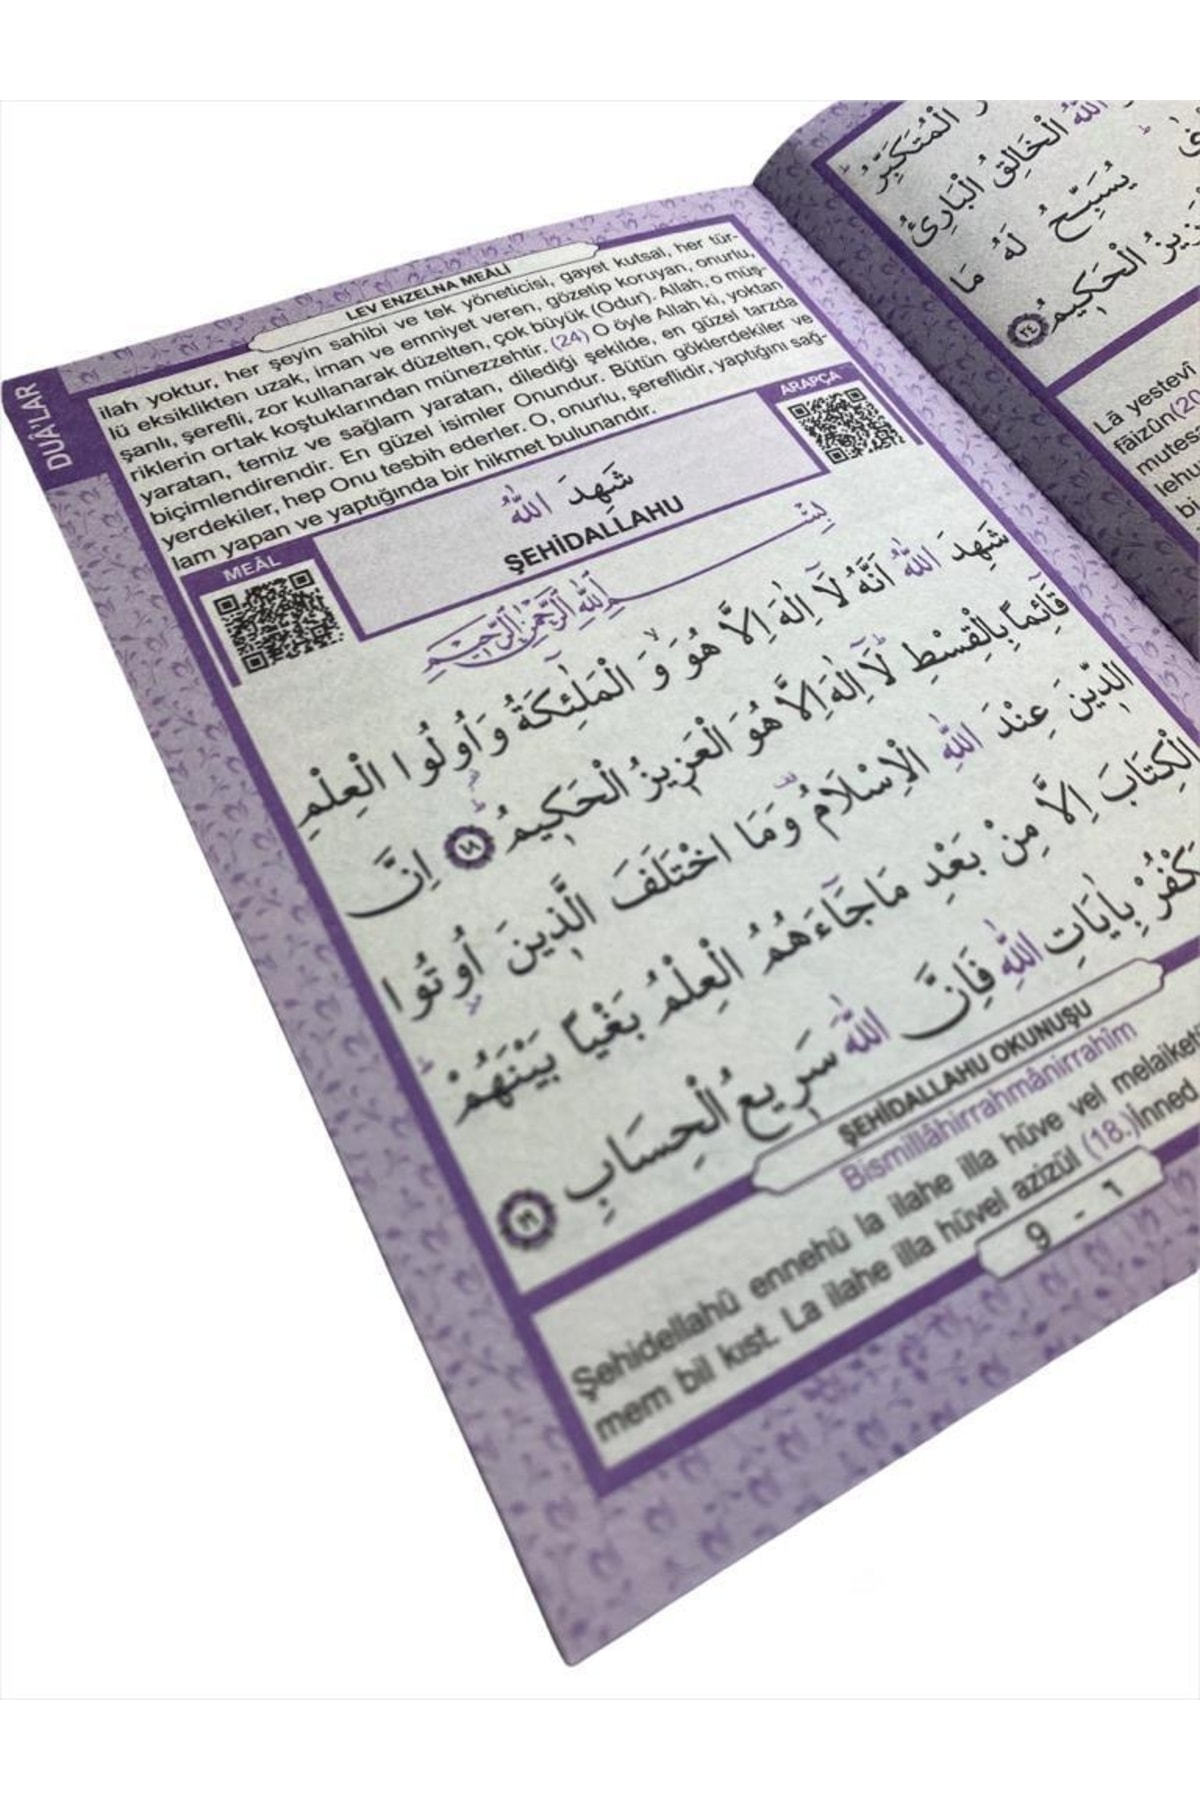 DUÂ'LAR
LEV ENZELNA MEÂLİ
ilah yoktur, her şeyin sahibi ve tek yöneticisi, gayet kutsal, her tür-
lü eksiklikten uzak, iman ve emniyet veren, gözetip koruyan, onurlu,
şanlı, şerefli, zor kullanarak düzelten, çok büyük (Odur). Allah, o müş-
riklerin ortak koştuklarından münezzehtir. (24) O öyle Allah ki, yoktan
yaratan, temiz ve sağlam yaratan, dilediği şekilde, en güzel tarzda
biçimlendirendir. En güzel isimler Onundur. Bütün göklerdekiler ve
yerdekiler, hep Onu tesbih ederler. O, onurlu, şereflidir, yaptığını sağ-
lam yapan ve yaptığında bir hikmet bulunandır.
MEÂL
ARAPÇA
شَهِدَ اللّٰهُ
ŞEHİDALLAHU
بِسْمِ اللّٰهِ الرَّحْمٰنِ الرَّحِيمِ
شَهِدَ اللّٰهُ اَنَّهُ لَآ اِلٰهَ اِلَّا هُوَۙ وَ الْمَلٰٓئِكَةُ وَاُولُوا الْعِلْمِ
قَآئِمًا بِالْقِسْطِۜ لَآ اِلٰهَ اِلَّا هُوَ الْعَزِيزُ الْحَكِيمُۜ ﴿١٨﴾ اِنَّ
الدِّينَ عِنْدَ اللّٰهِ الْاِسْلَامُ۠ وَمَا اخْتَلَفَ الَّذِينَ اُو۫تُوا
الْكِتَابَ اِلَّا مِنْ بَعْدِ مَاجَآءَهُمُ الْعِلْمُ بَغْيًا بَيْنَهُمْۜ
يَكْفُرْ بِاٰيَاتِ اللّٰهِ فَاِنَّ اللّٰهَ سَرِيعُ الْحِسَابِ ﴿١٩﴾
ŞEHİDALLAHU OKUNUŞU
Bismillâhirrahmânirrahîm
Şehidellahü ennehü la ilahe illa hüve vel melaiket
mem bil kıst. La ilahe illa hüvel azizül (18.)İnned
9 - ٦
الْمُتَكَبِّرُۜ
اللّٰهُ الْخَالِقُ الْبَارِئُ
يُسَبِّحُ لَهُ مَا
الْحَكِيمُ ﴿٢٤﴾
Lâ yestevî
fâizûn(20
mutes
lehu
bi